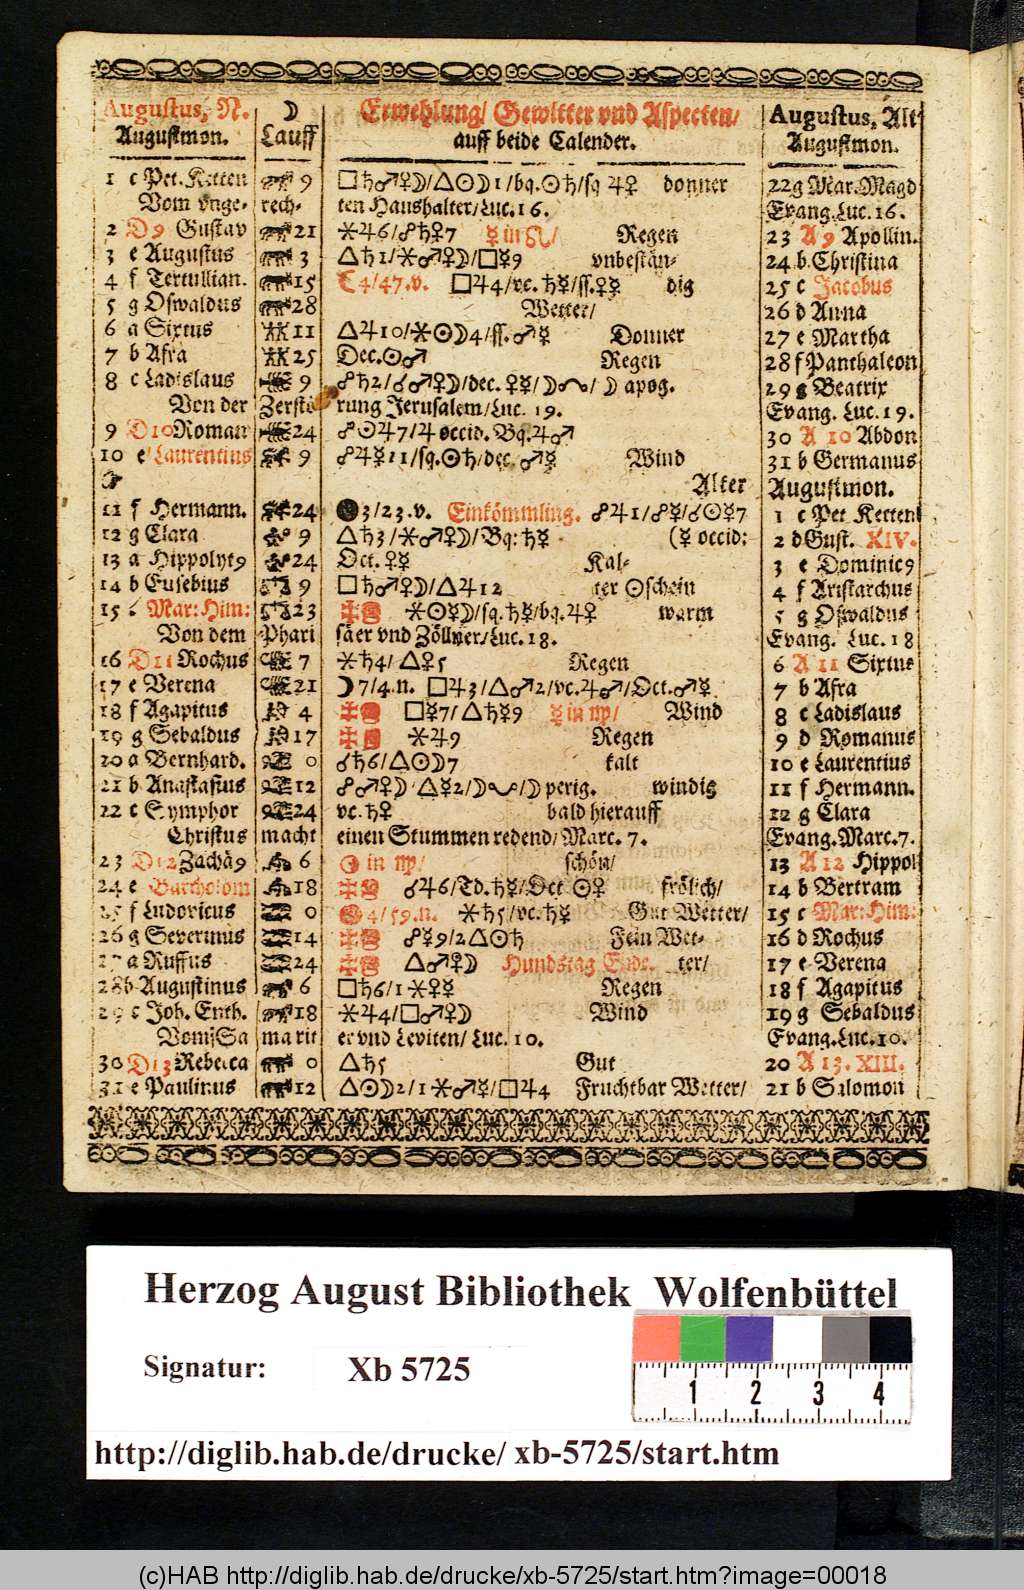 Augustus, N. ☽ Erwehlung/ Gewitter vnd Aspecten/ Augustus, Alt
Augustmon. Lauff auff beide Calender. Augustmon.
1 c Pet. Ketten 9 □♄♂♀☽/△☉☽1/bq.☉♄/sq ♃♀ donner 22 g Mar. Magd
Vom vnge- rech- ten Haushalter/Luc. 16. Evang. Luc. 16.
2 D9 Gustav 21 ⚹♃6/☍♄♀7 ☿ in ♌/ Regen 23 A 9 Apollin.
3 e Augustus 3 △♄1/⚹♂♀☽/□☿9 vnbestän- 24 b Christina
4 f Tertullian. 15 ☾4/47.v. □♃4/vc. ♄☿/ss.♀☿ dig 25 c Jacobus
5 g Oswaldus 28 Wetter/ 26 d Anna
6 a Sixtus 11 △♃10/⚹☉☽4/ss. ♂☿ Donner 27 e Martha
7 b Afra 25 Dec.☉♂ Regen 28 f Panthaleon
8 c Ladislaus 9 ☍♄2/☌♂♀☽/dec. ♀☿/☽/☽ apog. 29 g Beatrix
Von der Zerstö rung Jerusalem/Luc. 19. Evang. Luc. 19.
9 D10 Roman 24 ☍☉♃7/♃ occid. Bq.♃♂ 30 A 10 Abdon
10 e Laurentius 9 ☍♃☿11/sq.☉♄/dec. ♂☿ Wind 31 b Germanus
☞ Alter Augustmon.
11 f Hermann. 24 ●3/23.v. Einkömmling. ☍♃1/☍☿/☌☉☿7 1 c Pet Ketten
12 g Clara 9 △♄3/⚹♂♀☽/Bq:♄☿ (☿ occid: 2 d Gust. XIV.
13 a Hippolyt9 24 Oct.♀☿ Kal- 3 e Dominic9
14 b Eusebius 9 □♄♂♀☽/△♃12 ter ☉schein 4 f Aristarchus
15 c Mar: Him: 23 ⚹☉☿☽/sq.♄☿/bq.♃♀ warm 5 g Oswaldus
Von dem Phari säer vnd Zöllner/Luc. 18. Evang. Luc. 18
16 D11 Rochus 7 ⚹♄4/△♀5 Regen 6 A 11 Sixtus
17 e Verena 21 ☽7/4.n. □♃3/△♂2/vc.♃♂/Oct.♂☿ 7 b Afra
18 f Agapitus 4 □☿7/△♄☿9 ☿ in ♍/ Wind 8 c Ladislaus
19 g Sebaldus 17 ⚹♃9 Regen 9 d Romanus
20 a Bernhard. 0 ☌♄6/△☉☽7 kalt 10 e Laurentius
21 b Anastasius 12 ☍♂♀☽/△☿2/☽/☽ perig. windig 11 f Hermann.
22 c Symphor 24 vc. ♄♀ bald hierauff 12 g Clara
Christus macht einen Stummen redend/Marc. 7. Evang. Marc. 7.
23 D12 Zachä9 6 in ♍/ schön/ 13 A 12 Hippol
24 e Bartholom 18 ☌♃6/Td.♄☿/Oct ☉♀ frölich/ 14 b Bertram
25 f Ludovicus 0 4/59.n. ⚹♄5/vc.♄☿ Gut Wetter/ 15 c Mar: Him:
26 g Severinus 14 ☍☿9/2△☉♄ Fein Wet- 16 d Rochus
27 a Ruffus 24 △♂♀☽ Hundstag Ende. ter/ 17 e Verena
28 b Augustinus 6 □♄6/1⚹♀☿ Regen 18 f Agapitus
29 c Joh. Enth. 18 ⚹♃4/□♂♀☽ Wind 19 g Sebaldus
Vom Sa marit er vnd Leviten/ Luc. 10. Evang. Luc. 10.
30 D13 Rebecca 0 △♄5 Gut 20 A 13. XIII.
31 e Paulinus 12 △☉☽2/1⚹♂☿/□♃4 Fruchtbar Wetter/ 21 b Salomon
Herzog August Bibliothek Wolfenbüttel
Signatur: Xb 5725
1 2 3 4
http://diglib.hab.de/drucke/ xb-5725/start.htm
(c)HAB http://diglib.hab.de/drucke/xb-5725/start.htm?image=00018